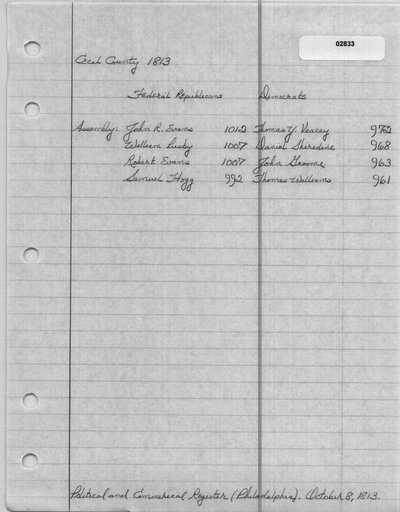 02833
Cecil County 1813
Federal Republicans Democrats
Assembly: John R. Evans 1012 Thomas Y. Veazey 972
William Lusby 1007 Daniel Sheredine 968
Robert Evans 1007 John Groome 963
Samuel Hogg 992 Thomas Williams 961
Political and Commercial Register (Philadelphia). October 8, 1813.